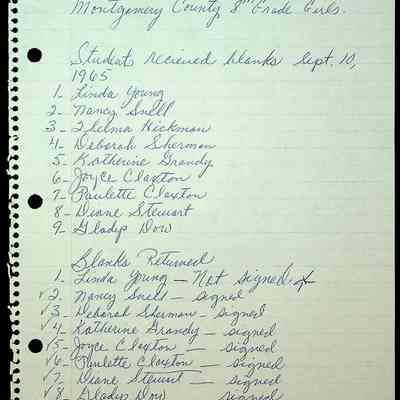 Montgomery County, 8th Grade Girls.
Students recieved blanks Sept. 10,
1965
1- Linda Young
2- Nancy Snell
3- Thelma Hickman
4- Deborah Sherman
5- Katherine Grandy
6- Joyce Claxton
7- Paulette Claxton
8- Diane Stewart
9- Gladys Dow
Blanks Returned
1- Linda Young - Not signed
✓2. Nancy Snell - signed
✓3- Deborah Sherman - signed
✓4- Katherine Grandy - signed
✓5- Joyce Claxton - signed
✓6- Paulette Claxton - signed
✓7- Diane Stewart - signed
✓8- Gladys Dow signed